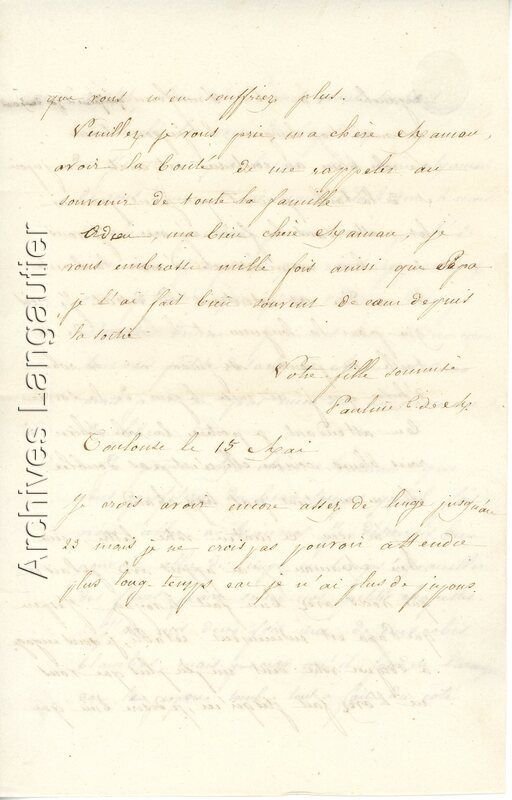 que vous n'en souffriez plus.
Veuillez, je vous prie, ma chère Maman,
avoir la bonté de me rappeler au
souvenir de toute la famille
Adieu, ma bien chère Maman, je
vous embrasse mille fois ainsi que Papa
je l'ai fait bien souvent de cœur depuis
la sortie
Votre fille soumise
Pauline de M.
Toulouse le 15 Mai
Je crois avoir encore assez de linge jusqu'au
23 mais je ne crois pas pouvoir attendre
plus long-temps car je n'ai plus de jupons.
Archives Langautier